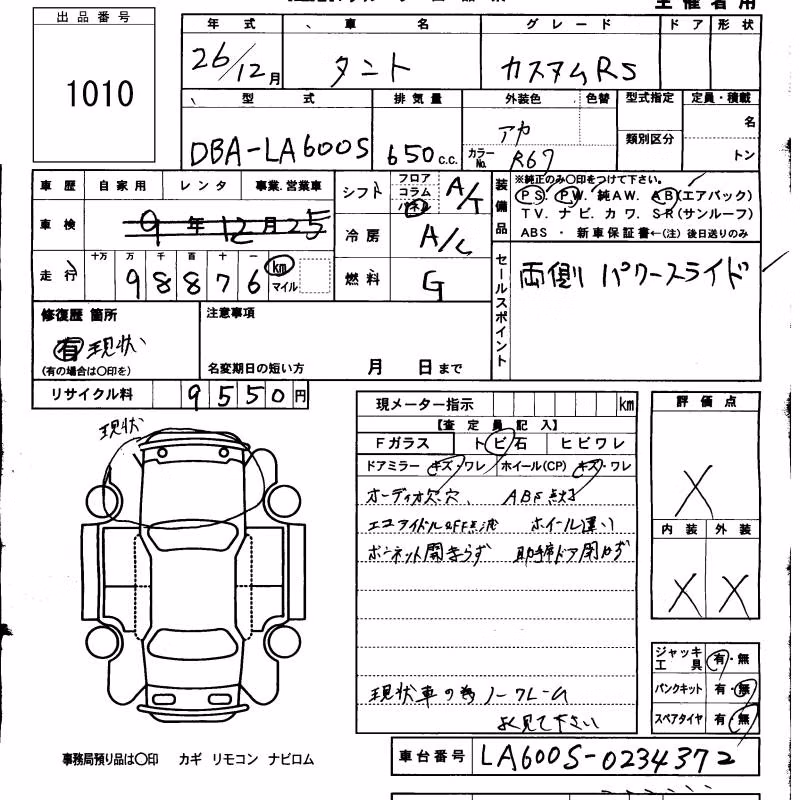 主催者用
出品番号
1010
年式 車名 グレード ドア 形状
26/12月 タント カスタムRS
型式 排気量 外装色 色替 型式指定 定員・積載
DBA-LA600S 650c.c. アカ 類別区分 名
カラーNo. R67 トン
車歴 自家用 レンタ 事業.営業車
シフト フロア コラム パネル A/T
車検 9年12月25
冷房 A/C
走行 十万 万 千 百 十 一
98876 km マイル
燃料 G
装備品 ※純正のみ〇印をつけて下さい。
PS. PW. 純AW. AB(エアバック)
TV. ナビ. カワ. SR(サンルーフ)
ABS ・ 新車保証書←(注)後日送りのみ
セールスポイント 両側パワースライド
修復歴 箇所
有 現状
(有の場合は〇印を)
注意事項
名変期日の短い方 月 日まで
リサイクル料 9550円
現状
現メーター指示 km
【査定員記入】
Fガラス トビ石 ヒビワレ
ドアミラー キズ・ワレ ホイール(CP) キズ・ワレ
オーディオ欠.穴、 ABF点灯
エコアイドルOFF点滅 ホイール違い
ボンネット開まらず 助手席ドア閉わず
現状車の為ノークレーム
よく見て下さい
評価点
X
内装 外装
X X
ジャッキ工具 有・無
パンクキット 有・無
スペアタイヤ 有・無
事務局預り品は〇印 カギ リモコン ナビロム
車台番号 LA600S-0234372